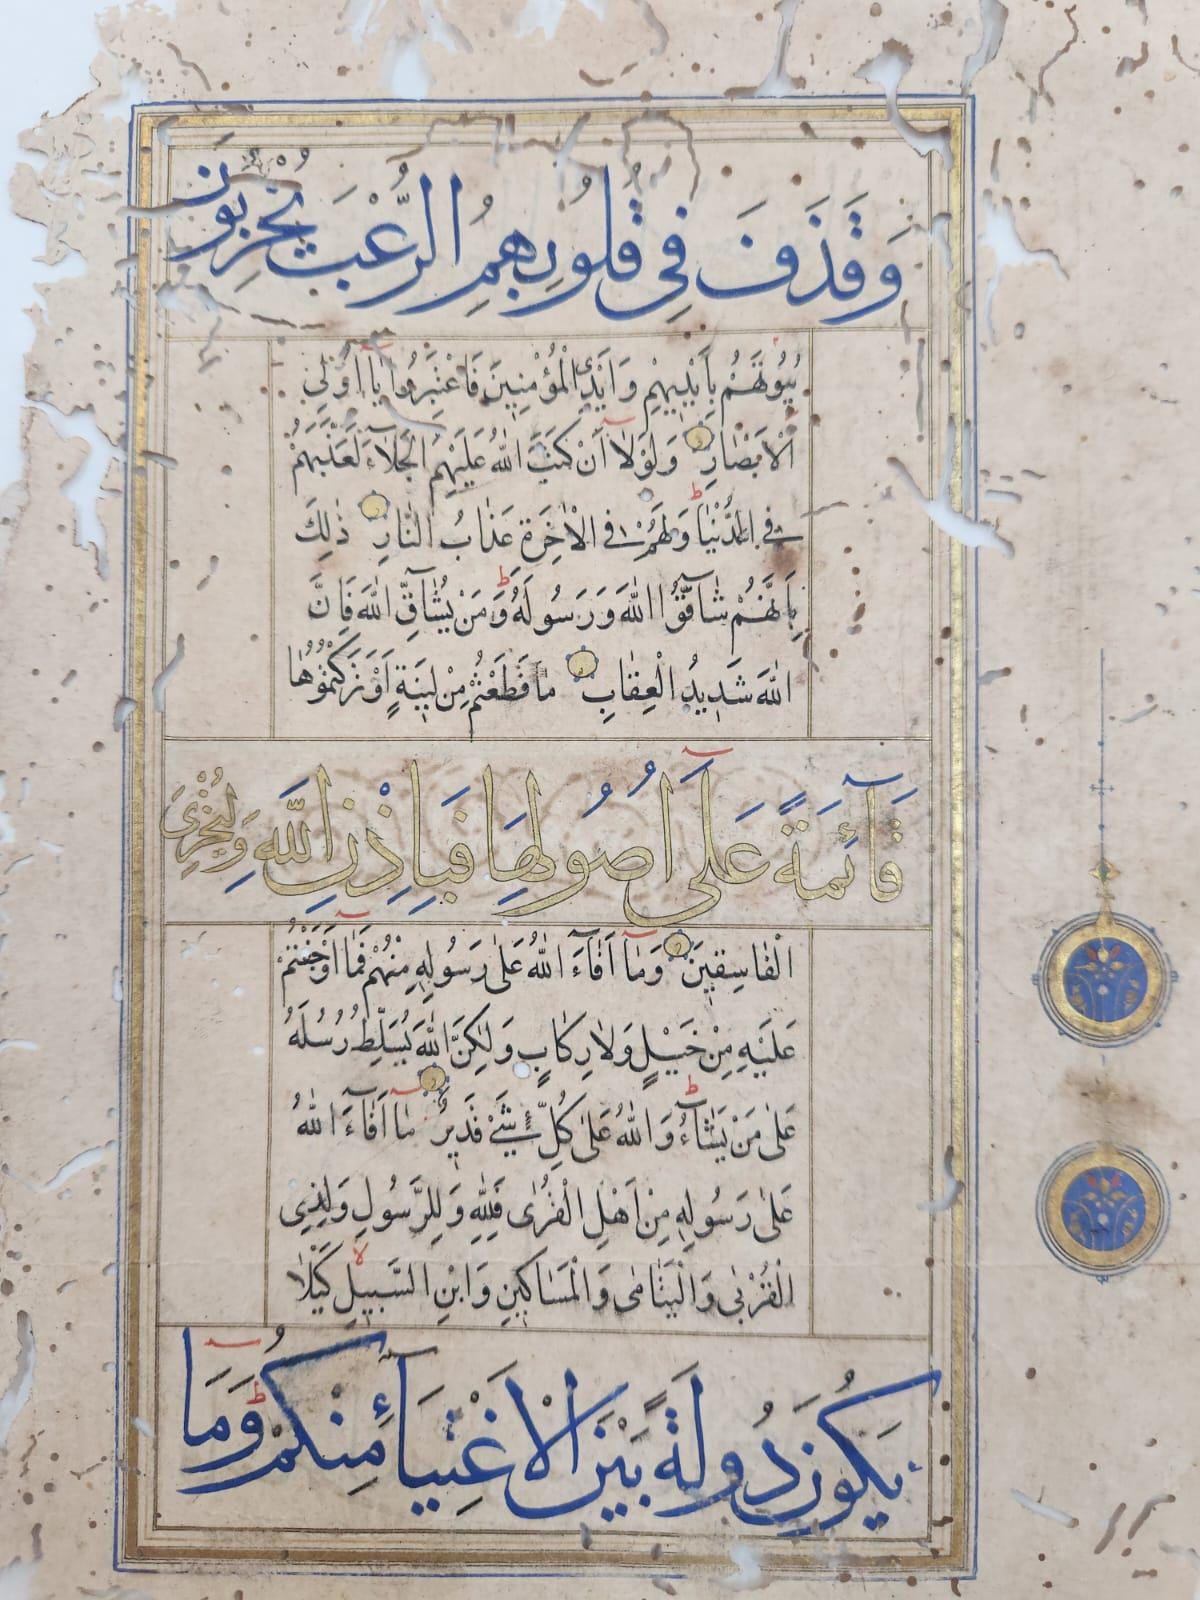 وَقَذَفَ فِي قُلُوبِهِمُ الرُّعْبَ يُخْرِبُونَ
بُيُوتَهُمْ بِاَيْدِيهِمْ وَاَيْدِي الْمُؤْمِنِينَ فَاعْتَبِرُوا يَٓا اُولِي
الْاَبْصَارِ وَلَوْلَٓا اَنْ كَتَبَ اللهُ عَلَيْهِمُ الْجَلَٓاءَ لَعَذَّبَهُمْ
فِي الدُّنْيَا ط وَلَهُمْ فِي الْاٰخِرَةِ عَذَابُ النَّارِ ذٰلِكَ
بِاَنَّهُمْ شَٓاقُّوا اللهَ وَرَسُولَهُ ط وَمَنْ يُشَٓاقِّ اللهَ فَاِنَّ
اللهَ شَدِيدُ الْعِقَابِ مَا قَطَعْتُمْ مِنْ لِينَةٍ اَوْ تَرَكْتُمُوهَا
قَٓائِمَةً عَلَٓى اُصُولِهَا فَبِاِذْنِ اللّٰهِ وَلِيُخْزِيَ
الْفَاسِقِينَ وَمَٓا اَفَٓاءَ اللهُ عَلٰى رَسُولِهِ مِنْهُمْ فَمَٓا اَوْجَفْتُمْ
عَلَيْهِ مِنْ خَيْلٍ وَلَا رِكَابٍ وَلٰكِنَّ اللهَ يُسَلِّطُ رُسُلَهُ
عَلٰى مَنْ يَشَٓاءُ ط وَاللهُ عَلٰى كُلِّ شَيْءٍ قَدِيرٌ مَٓا اَفَٓاءَ اللهُ
عَلٰى رَسُولِهِ مِنْ اَهْلِ الْقُرٰى فَلِلّٰهِ وَلِلرَّسُولِ وَلِذِي
الْقُرْبٰى وَالْيَتَامٰى وَالْمَسَاكِينِ وَابْنِ السَّبِيلِ لا كَيْلَا
يَكُونَ دُولَةً بَيْنَ الْاَغْنِيَٓاءِ مِنْكُمْ ط وَمَٓا